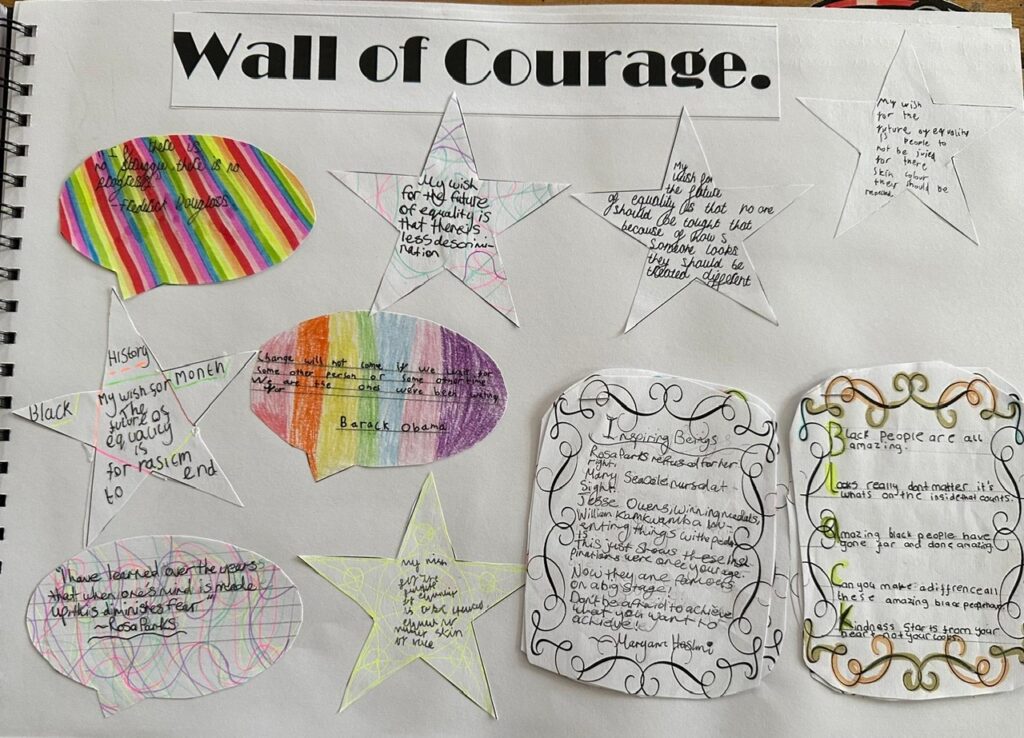 Wall of Courage.
"If there is
no struggle there is no
progress"
- Fredrick Douglass
My wish
for the future
of equality is
that there is
less descrimi-
nation
My
wish for
the future
of equality is that no one
should be tought that
because of how s
someone looks
they should be
treated different
My wish
for the
future of equality
is people to
not be
for there
skin colour
their should be
History
Black
Month
My wish for
the
future as
equality
is
for rasicm
to end
Change will not come if we wait for
some other person or some other time
We are the ones we've been waiting
for
Barack Obama
"I have learned over the years
that when one's mind is made
up this diminishes fear
~Rosa Parks
my wish
for the
future
of equality
is
skin
Inspiring Bengs
Rosa Parks refused for her
right.
Mary Seacole nursed at
sight.
Jesse Owens, winning medals,
William Kamkwamba inv-
enting things with peda-
ls
This just shows these insi
pirations were once your age.
Now they are famous
on a big stage!
Don't be afraid to achieve
what you want to
achieve!
~Maryam Hashmi
Black people are all
amazing.
Looks really dont matter it's
whats on the inside that counts.
Amazing black people have
gone far and done amazing.
Can you make a difference all
these amazing black people have
Kindness star is from your
heart not your looks